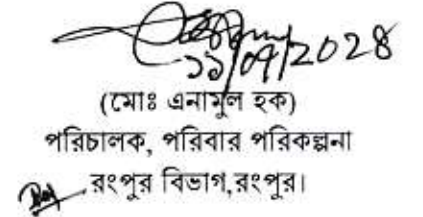 ১১/০৭/২০২৪
(মোঃ এনামুল হক)
পরিচালক, পরিবার পরিকল্পনা
রংপুর বিভাগ,রংপুর।